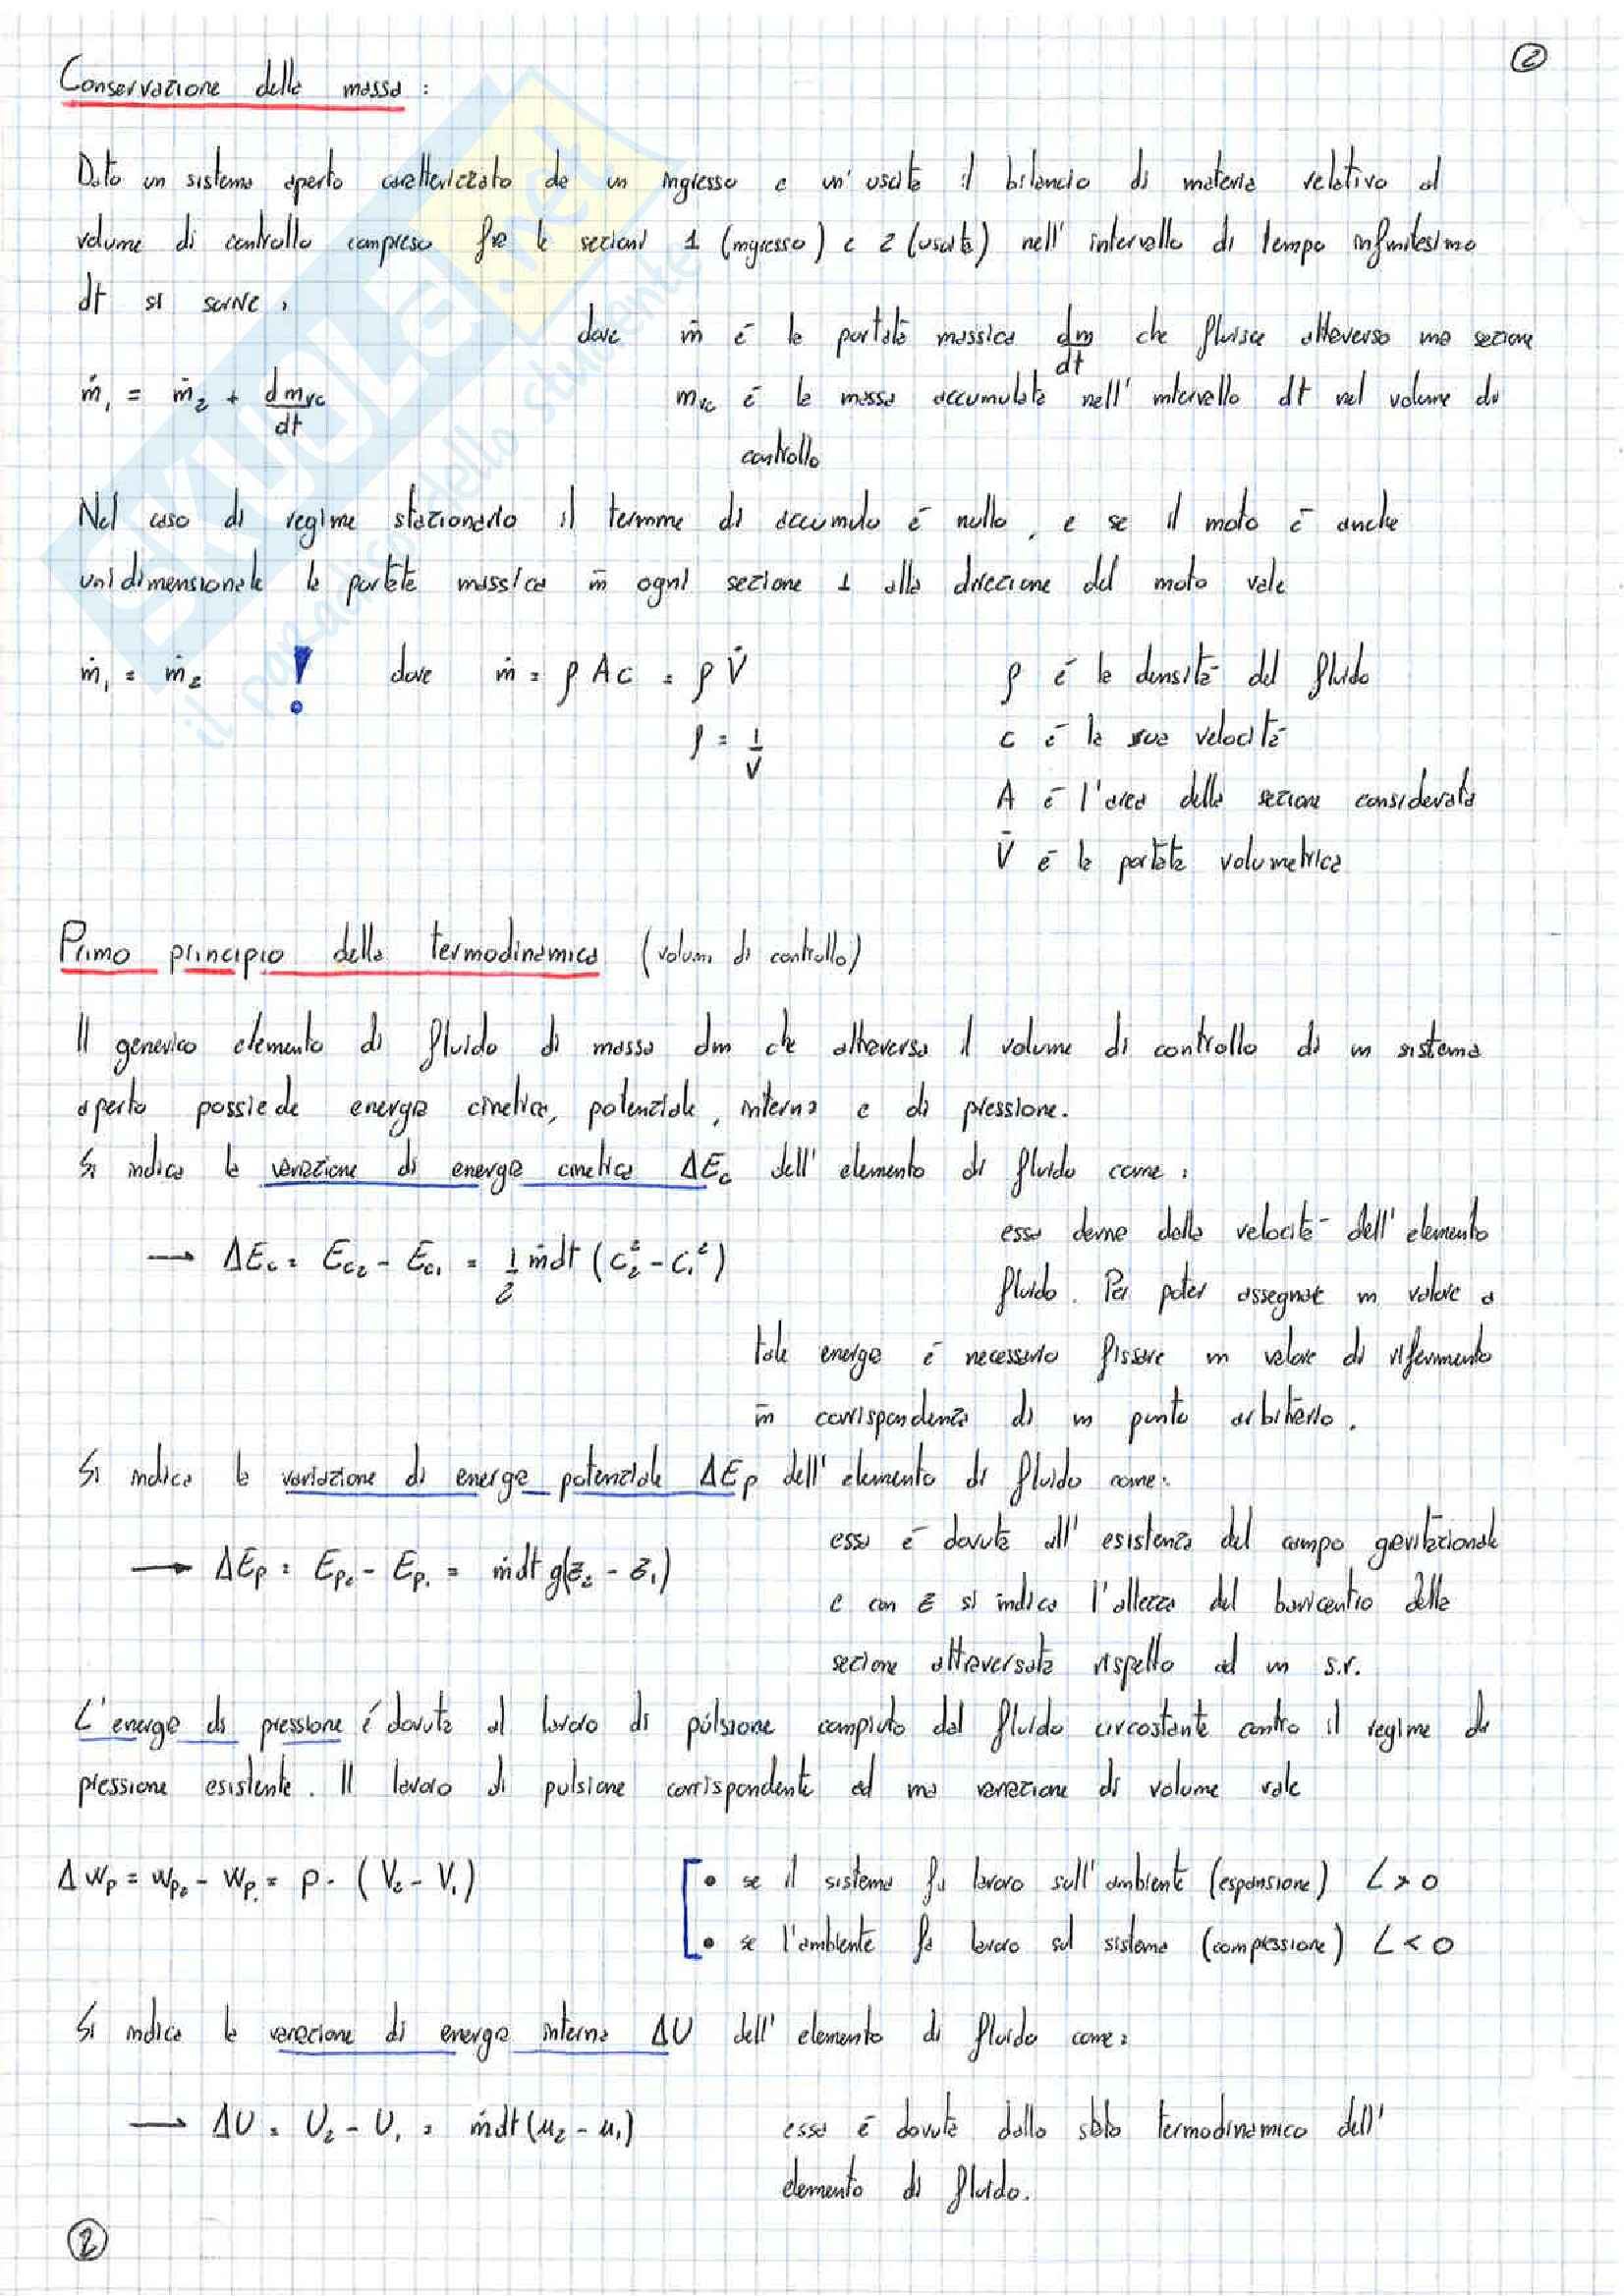 ②
Conservazione della massa :
Dato un sistema aperto caratterizzato da un ingresso e un'uscita il bilancio di materia relativo al
volume di controllo compreso fra le sezioni 1 (ingresso) e 2 (uscita) nell'intervallo di tempo infinitesimo
dt si scrive :
dove ṁ è la portata massica dm/dt che fluisce attraverso una sezione
ṁ₁ = ṁ₂ + dm_vc/dt
m_vc è la massa accumulata nell'intervallo dt nel volume di
controllo
Nel caso di regime stazionario il termine di accumulo è nullo, e se il moto è anche
unidimensionale la portata massica in ogni sezione ⊥ alla direzione del moto vale
ṁ₁ = ṁ₂ ! dove ṁ = ρ A c = ρ V̇ ρ è la densità del fluido
ρ = 1/v c è la sua velocità
A è l'area della sezione considerata
V̇ è la portata volumetrica
Primo principio della termodinamica (volumi di controllo)
Il generico elemento di fluido di massa dm che attraversa il volume di controllo di un sistema
aperto possiede energia cinetica, potenziale, interna e di pressione.
Si indica la variazione di energia cinetica ΔEc dell'elemento di fluido come :
→ ΔEc = Ec₂ - Ec₁ = 1/2 ṁdt (c₂² - c₁²)
essa deriva dalla velocità dell'elemento
fluido. Per poter assegnare un valore a
tale energia è necessario fissare un valore di riferimento
in corrispondenza di un punto arbitrario.
Si indica la variazione di energia potenziale ΔEp dell'elemento di fluido come:
→ ΔEp = Ep₂ - Ep₁ = ṁdt g(z₂ - z₁)
essa è dovuta all'esistenza del campo gravitazionale
e con z si indica l'altezza del baricentro della
sezione attraversata rispetto ad un s.r.
L'energia di pressione è dovuta al lavoro di pulsione compiuto dal fluido circostante contro il regime di
pressione esistente. Il lavoro di pulsione corrispondente ad una variazione di volume vale
ΔWp = Wp₂ - Wp₁ = p · (V₂ - V₁)
• se il sistema fa lavoro sull'ambiente (espansione) L > 0
• se l'ambiente fa lavoro sul sistema (compressione) L < 0
Si indica la variazione di energia interna ΔU dell'elemento di fluido come:
→ ΔU = U₂ - U₁ = ṁdt (u₂ - u₁) essa è dovuta dallo stato termodinamico dell'
elemento di fluido.
②
SKUOLA.net
il portale dello studente